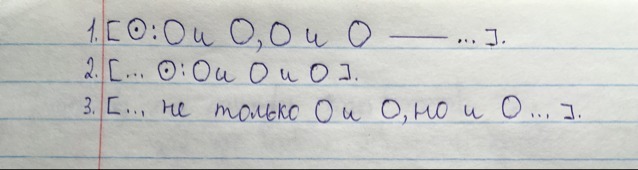 1. [⊙: O и O, O и O — ...].
2. [... ⊙: O и O и O].
3. [... не только O и O, но и O ...].